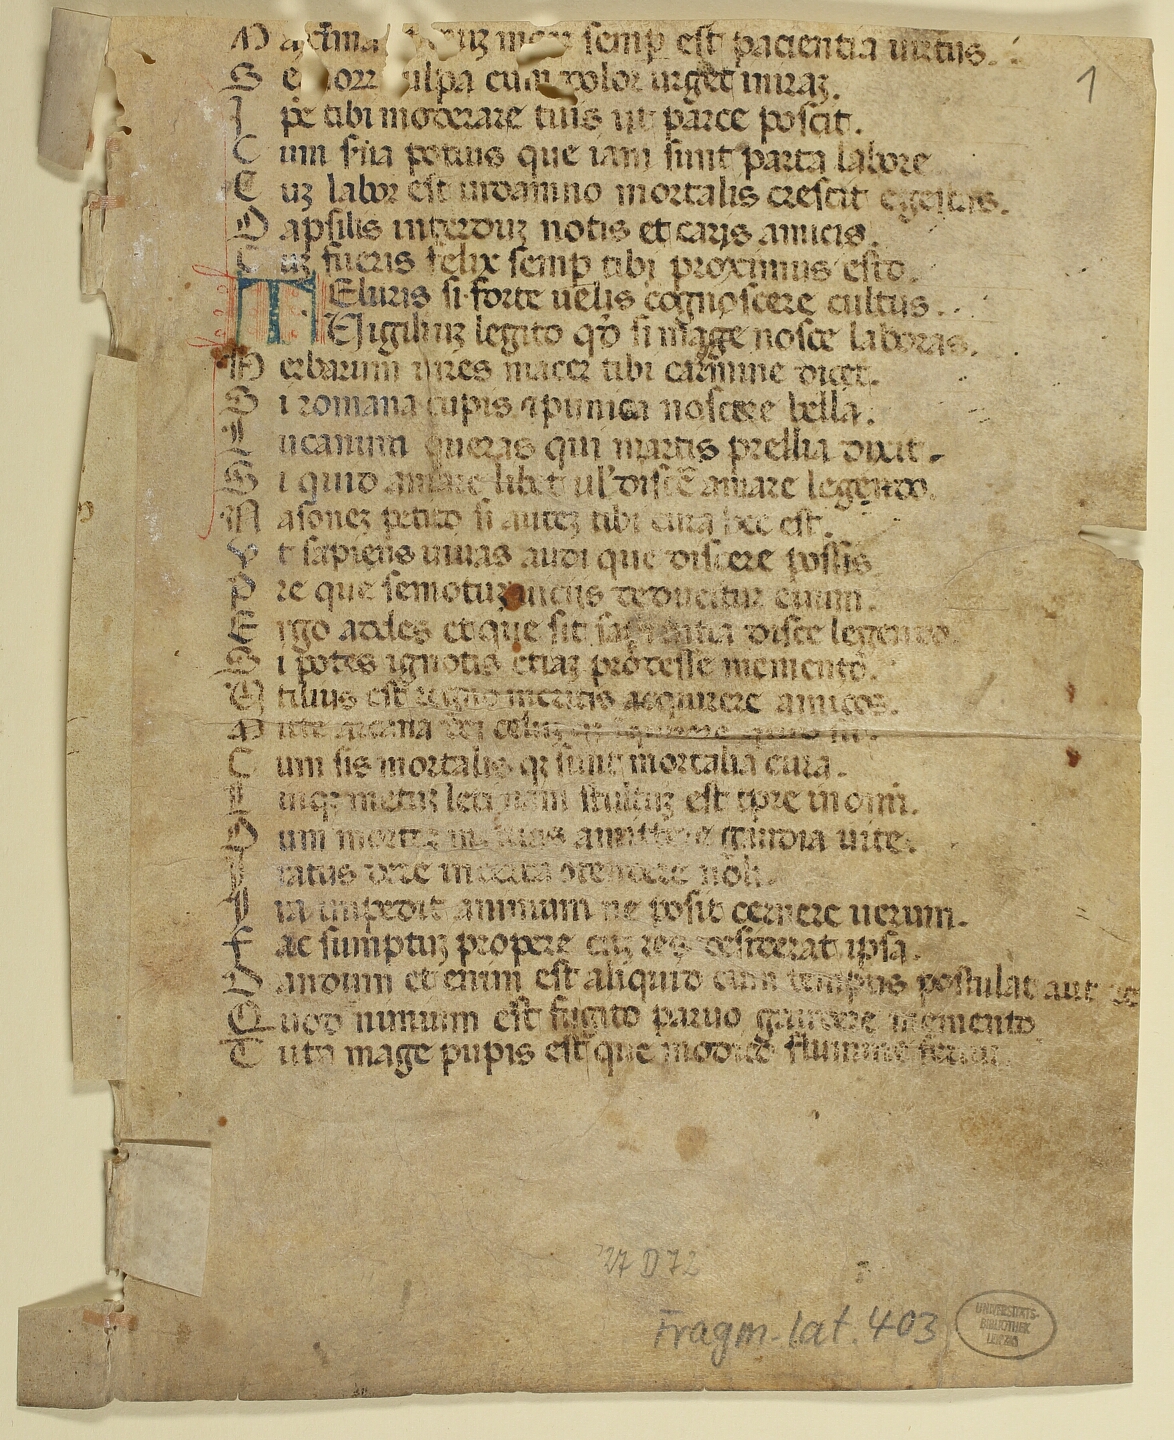 semp est pacientia uirtus.
1
S e ulpa cum dolor urget
I pe tibi moderare tuis ut parce poscit.
C um sua potius que iam sunt parta labore
C uz labor est in damno mortalis crescit egestas.
D apsilis interduz notis et caris amicis.
C uz fueris felix semp tibi proximus esto.
T Eluris si forte uelis cognoscere cultus.
Uigiliuz legito qd si mage nosce laboras.
H erbarum uires macer tibi carmine dicet.
S i romana cupis et punica noscere bella.
L ucanum queras qui martis prellia dixit.
S i quid amare libet ul' discere amare legendo.
N asonez petito si autez tibi cura hec est.
V t sapiens uiuas audi que discere possis
P re que semotuz uiciis deducitur euum.
E rgo ades et que sit sapientia disce legendo.
S i potes ignotis etiaz prodesse memento.
U tilius est regno meritis acquirere amicos.
M itte arcana dei celuz inquirere quid
C um sis mortalis q sunt mortalia cura.
L inqz metuz leti nam stultuz est tpre in omni.
D um mortez metuas amittere gaudia uite.
I ratus de re incerta contendere noli.
I ra impedit animum ne posit cernere uerum.
F ac sumptuz propere cuz res desiderat ipsa.
D andum et enim est aliquid cum tempus postulat aut
Q uod nimium est fugito paruo gaudere memento
T uta mage pupis est que modico flumine fertur.
27 D 72
Fragm. lat. 403
UNIVERSITÄTS-
BIBLIOTHEK
LEIPZIG